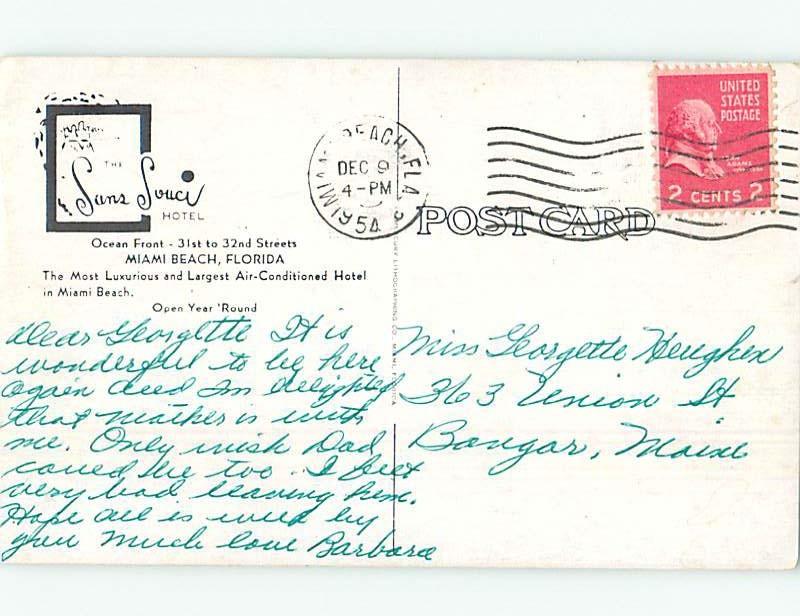 THE
Sans Souci
HOTEL
Ocean Front - 31st to 32nd Streets
MIAMI BEACH, FLORIDA
The Most Luxurious and Largest Air-Conditioned Hotel
in Miami Beach.
Open Year 'Round
Dear Georgette It is
wonderful to be here
again and Im delighted
that mother is with
me. Only wish Dad
could be too. I feel
very bad leaving him.
Hope all is well by
you Much love Barbara
MIAMI BEACH, FLA
DEC 9
4-PM
54
POST CARD
UNITED
STATES
POSTAGE
JOHN
ADAMS
2 CENTS 2
Miss Georgette Heughen
363 Union St
Bangor, Maine